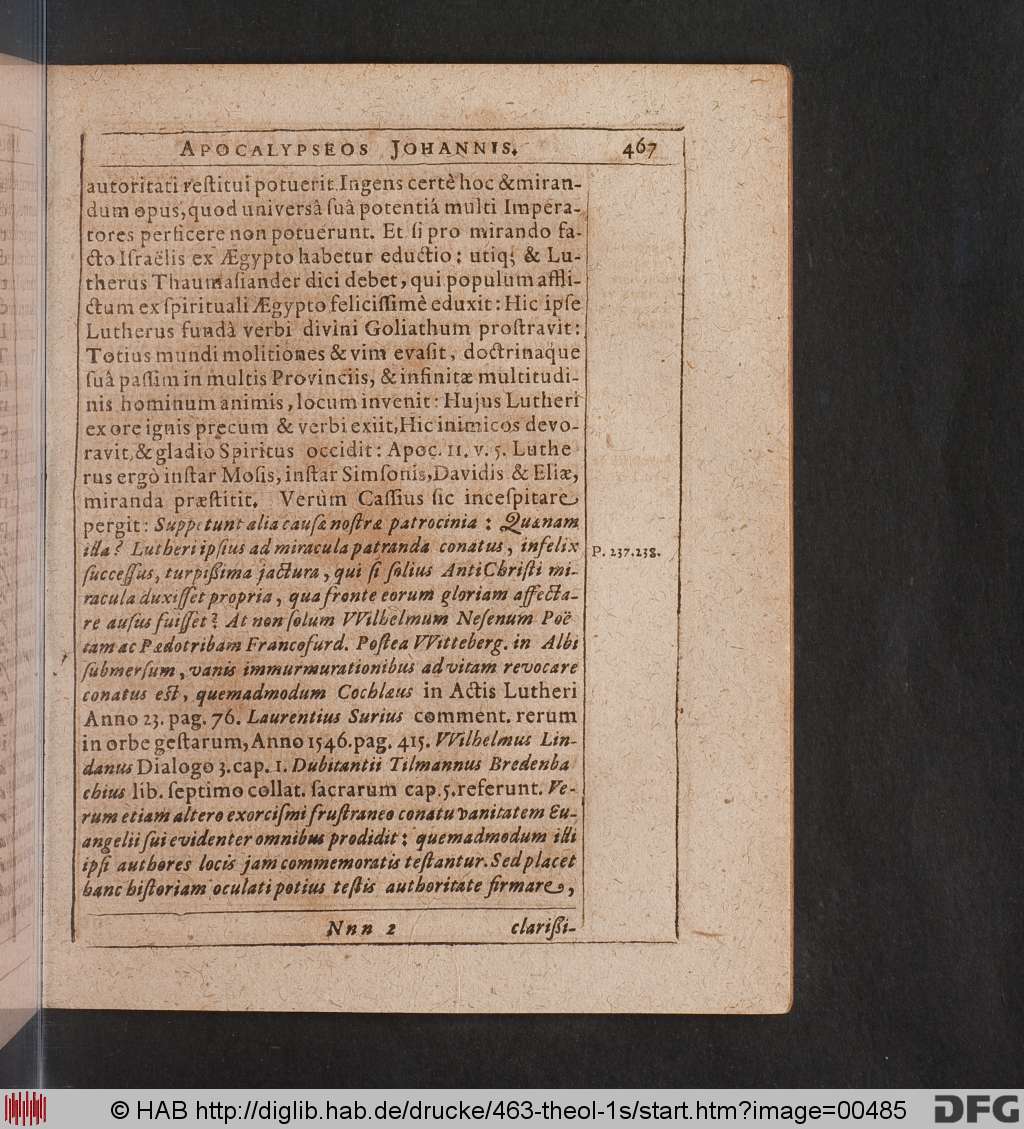 APOCALYPSEOS JOHANNIS. 467
autoritati reſtitui potuerit. Ingens certè hoc & miran-
dum opus, quod universâ ſuâ potentiâ multi Impera-
tores perficere non potuerunt. Et ſi pro mirando fa-
cto Iſraëlis ex Ægypto habetur eductio: utiq; & Lu-
therus Thaumaſiander dici debet, qui populum affli-
ctum ex ſpirituali Ægypto feliciſſimè eduxit: Hic ipſe
Lutherus fundâ verbi divini Goliathum proſtravit:
Totius mundi molitiones & vim evaſit, doctrinaque
ſuâ paſſim in multis Provinciis, & infinitæ multitudi-
nis hominum animis, locum invenit: Hujus Lutheri
ex ore ignis precum & verbi exiit, Hic inimicos devo-
ravit, & gladio Spiritus occidit: Apoc. 11. v. 5. Luthe
rus ergò inſtar Moſis, inſtar Simſonis, Davidis & Eliæ,
miranda præſtitit. Verùm Caſſius ſic inceſpitare
pergit: Suppetunt alia cauſæ noſtræ patrocinia: Quænam
illa? Lutheri ipſius ad miracula patranda conatus, infelix
ſucceſſus, turpißima jactura, qui ſi ſolius AntiChriſti mi-
racula duxiſſet propria, qua fronte eorum gloriam affecta-
re auſus fuiſſet? At non ſolum VVilhelmum Neſenum Poë
tam ac Pædotribam Francofurd. Poſtea VVitteberg. in Albi
ſubmerſum, vanis immurmurationibus ad vitam revocare
conatus eſt, quemadmodum Cochlæus in Actis Lutheri
Anno 23. pag. 76. Laurentius Surius comment. rerum
in orbe geſtarum, Anno 1546. pag. 415. VVilhelmus Lin-
danus Dialogo 3. cap. 1. Dubitantii Tilmannus Bredenba
chius lib. ſeptimo collat. ſacrarum cap. 5. referunt. Ve-
rum etiam altero exorciſmi fruſtraneo conatu vanitatem Eu-
angelii ſui evidenter omnibus prodidit: quemadmodum illi
ipſi authores locis jam commemoratis teſtantur. Sed placet
hanc hiſtoriam oculati potius teſtis authoritate firmare,
P. 237.238.
Nnn 2 clarißi-
© HAB http://diglib.hab.de/drucke/463-theol-1s/start.htm?image=00485
DFG